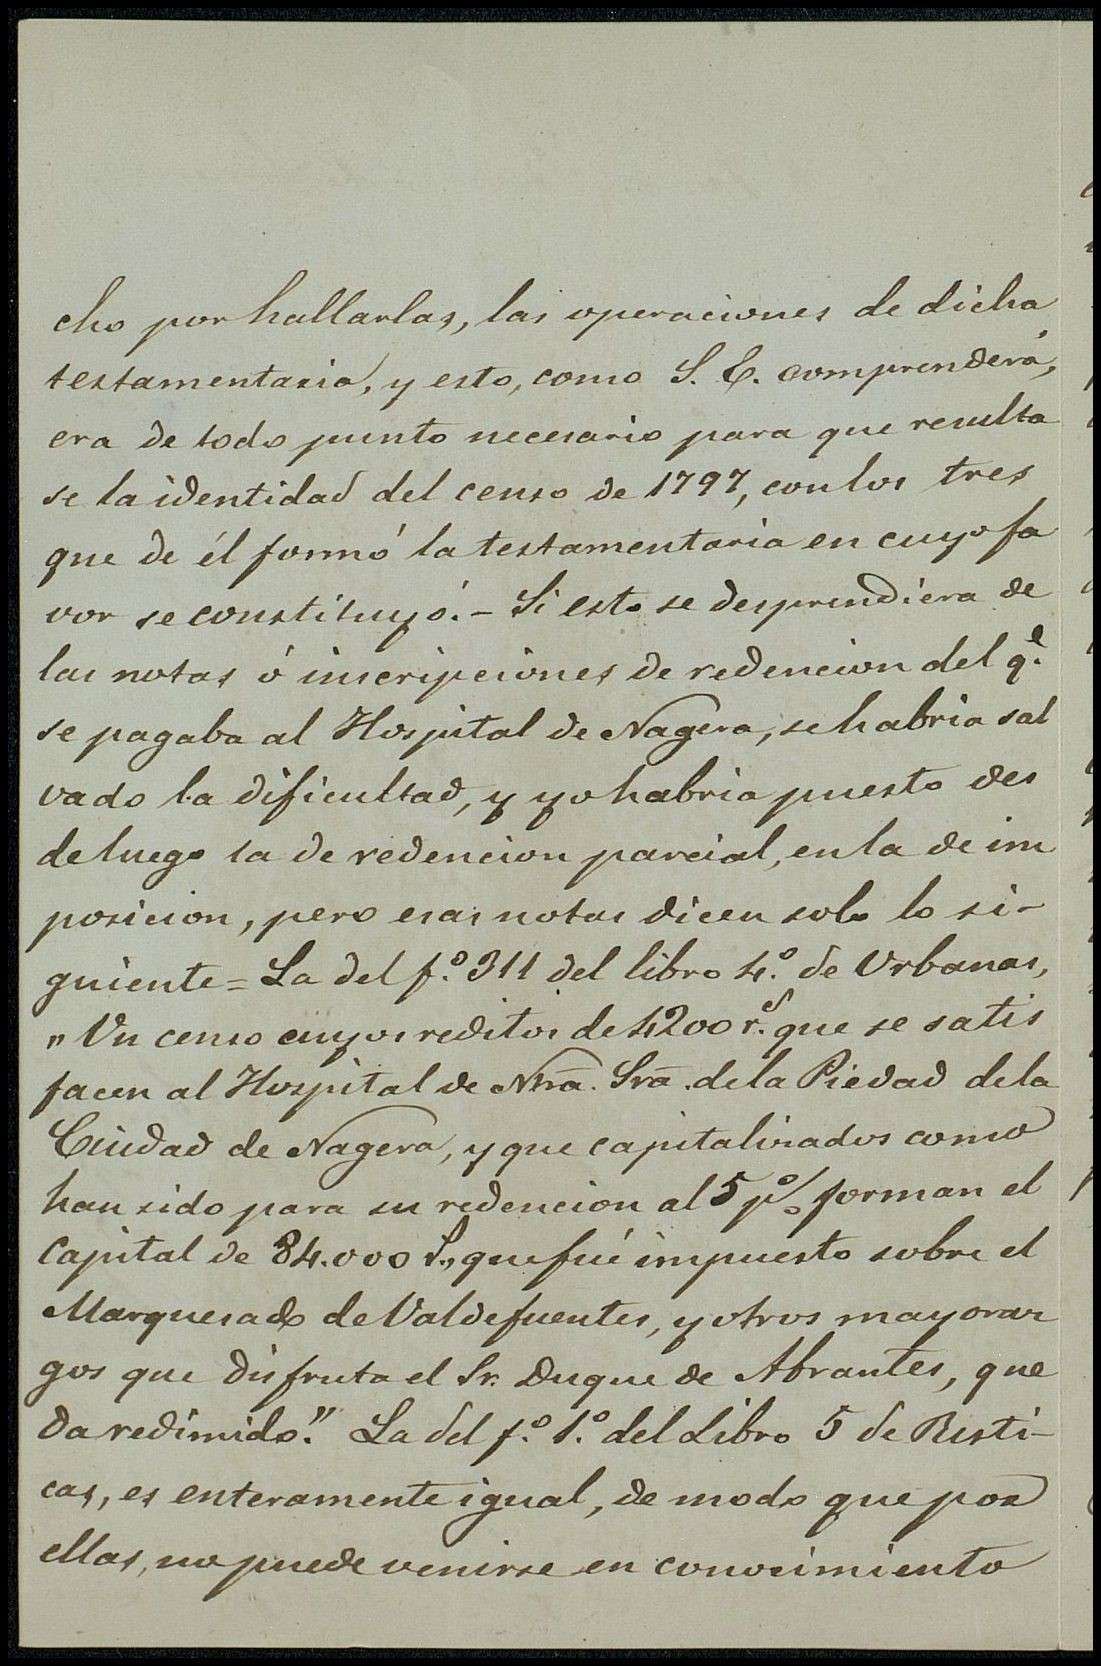 cho por hallarlas, las operaciones de dicha
testamentaria, y esto, como S. E. comprenderá,
era de todo punto necesario para que resulta
se la identidad del censo de 1797, con los tres
que de él formó la testamentaria en cuyo fa
vor se constituyó.- Si esto se desprendiera de
las notas ó inscripciones de redencion del q.e
se pagaba al Hospital de Nagera, se habria sal
vado la dificultad, y yo habria puesto des
de luego la de redencion parcial, en la de im
posicion, pero esas notas dicen solo lo si-
guiente = La del f.º 311 del libro 4.º de Urbanas,
"Un censo cuyos reditos de 4200 r.s que se satis
facen al Hospital de Ntra. Sra. de la Piedad de la
Ciudad de Nagera, y que capitalizados como
han sido para su redencion al 5 p% forman el
capital de 84.000 r., que fué impuesto sobre el
Marquesado de Valdefuentes, y otros mayoraz
gos que disfruta el Sr. Duque de Abrantes, que
da redimido." La del f.º 1.º del Libro 5 de Rusti-
cas, es enteramente igual, de modo que por
ellas, no puede venirse en conocimiento